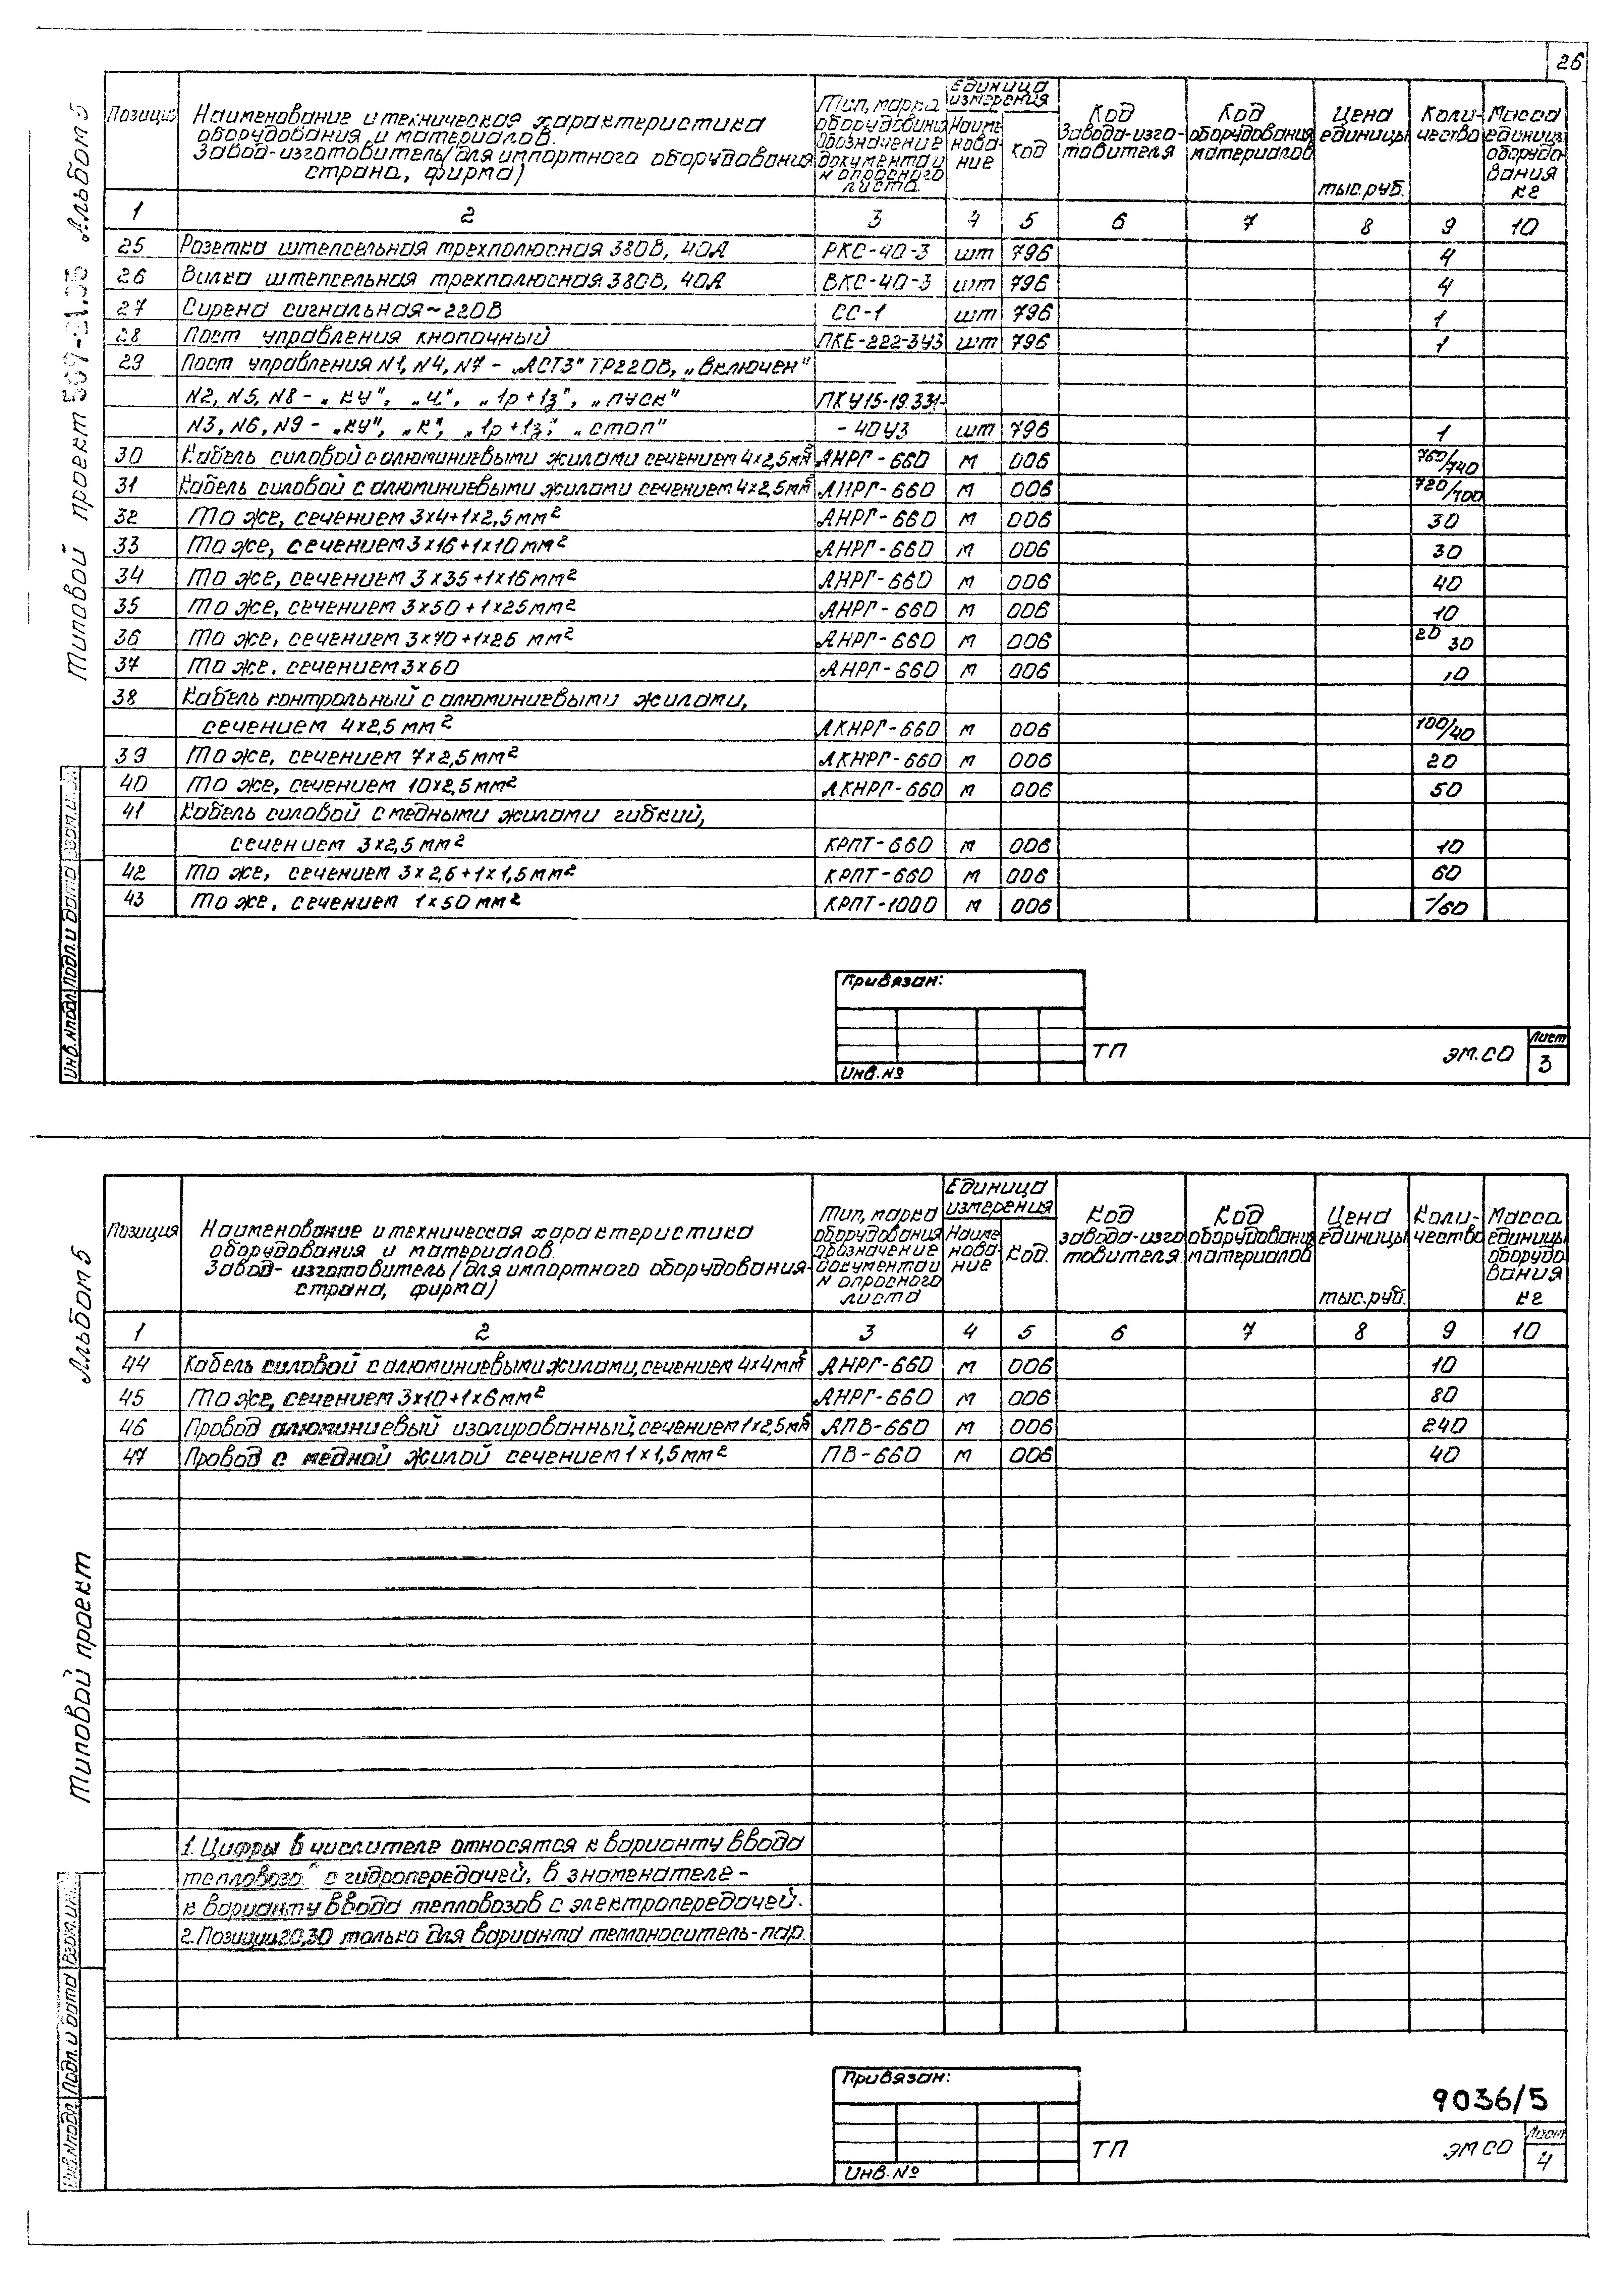 26
Типовой проект Альбом 5
Позиция | Наименование и техническая характеристика оборудования и материалов. Завод-изготовитель (для импортного оборудования страна, фирма) | Тип, марка оборудования обозначение документа и N опросного листа | Единица измерения Наименование | Код | Код завода-изготовителя | Код оборудования материалов | Цена единицы тыс.руб. | Количество | Масса единицы оборудования кг
1 | 2 | 3 | 4 | 5 | 6 | 7 | 8 | 9 | 10
25 | Розетка штепсельная трехполюсная 380В, 40А | РКС-40-3 | шт | 796 | 4
26 | Вилка штепсельная трехполюсная 380В, 40А | ВКС-40-3 | шт | 796 | 4
27 | Сирена сигнальная ~220В | СС-1 | шт | 796 | 1
28 | Пост управления кнопочный | ПКЕ-222-3У3 | шт | 796 | 1
29 | Пост управления N1, N4, N7 - „АСТ3" ТР220В, „Включен"
N2, N5, N8 - „КУ", „Ч", „1р+1з", „пуск" | ПКУ15-19.331-
N3, N6, N9 - „КУ", „К", „1р+1з", „стоп" | -40У3 | шт | 796 | 1
30 | Кабель силовой с алюминиевыми жилами сечением 4х2,5мм² | АНРГ-660 | м | 006 | 760/740
31 | Кабель силовой с алюминиевыми жилами сечением 4х2,5мм² | АНРГ-660 | м | 006 | 720/700
32 | То же, сечением 3х4+1х2,5мм² | АНРГ-660 | м | 006 | 30
33 | То же, сечением 3х16+1х10мм² | АНРГ-660 | м | 006 | 30
34 | То же, сечением 3х35+1х16мм² | АНРГ-660 | м | 006 | 40
35 | То же, сечением 3х50+1х25мм² | АНРГ-660 | м | 006 | 10
36 | То же, сечением 3х70+1х25 мм² | АНРГ-660 | м | 006 | 20 30
37 | То же, сечением 3х60 | АНРГ-660 | м | 006 | 10
38 | Кабель контрольный с алюминиевыми жилами,
сечением 4х2,5 мм² | АКНРГ-660 | м | 006 | 100/40
39 | То же, сечением 7х2,5мм² | АКНРГ-660 | м | 006 | 20
40 | То же, сечением 10х2,5мм² | АКНРГ-660 | м | 006 | 50
41 | Кабель силовой с медными жилами гибкий,
сечением 3х2,5мм² | КРПТ-660 | м | 006 | 10
42 | То же, сечением 3х2,6+1х1,5мм² | КРПТ-660 | м | 006 | 60
43 | То же, сечением 1х50мм² | КРПТ-1000 | м | 006 | -/60
Инв.Nподл. Подп. и дата
Привязан:
Инв.№
ТП ЭМ.СО
Лист
3
Типовой проект Альбом 5
Позиция | Наименование и техническая характеристика оборудования и материалов. Завод-изготовитель (для импортного оборудования- страна, фирма) | Тип, марка оборудования обозначение документа и N опросного листа | Единица измерения Наименование | Код. | Код завода-изготовителя | Код оборудования материалов | Цена единицы тыс.руб. | Количество | Масса единицы оборудования кг
1 | 2 | 3 | 4 | 5 | 6 | 7 | 8 | 9 | 10
44 | Кабель силовой с алюминиевыми жилами, сечением 4х4мм² | АНРГ-660 | м | 006 | 10
45 | То же, сечением 3х10+1х6мм² | АНРГ-660 | м | 006 | 80
46 | Провод алюминиевый изолированный, сечением 1х2,5мм² | АПВ-660 | м | 006 | 240
47 | Провод с медной жилой сечением 1х1,5мм² | ПВ-660 | м | 006 | 40
1. Цифры в числителе относятся к варианту ввода
с гидропередачей, в знаменателе -
к варианту ввода тепловозов с электропередачей.
2. Позиции 20,30 только для варианта теплоноситель-пар.
Инв.Nподл. Подп. и дата Взам.инв.
Привязан:
Инв.№
9036/5
ТП ЭМ СО
Лист
4